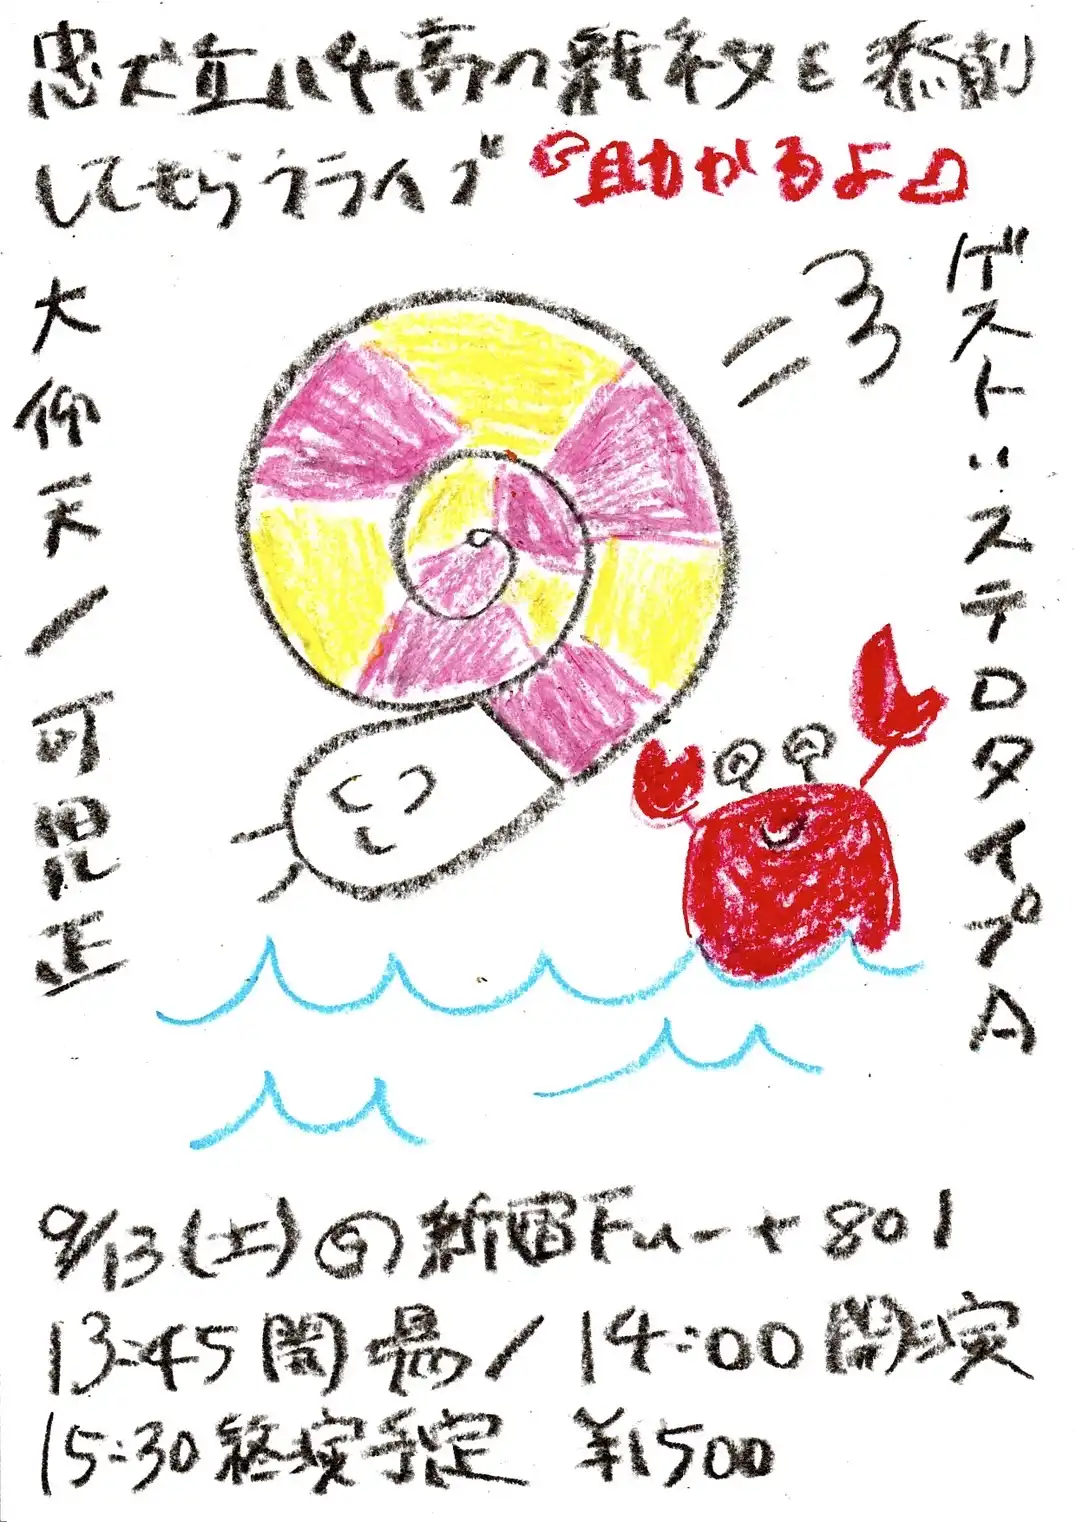 忠犬立ハチ高の新ネタを添削
してもらうライブ『助かるよ』
ゲスト:ステロタイプA
大仰天/可児正
9/13(土)@新宿Fu-+801
13:45開場/14:00開演
15:30終演予定 ¥1500